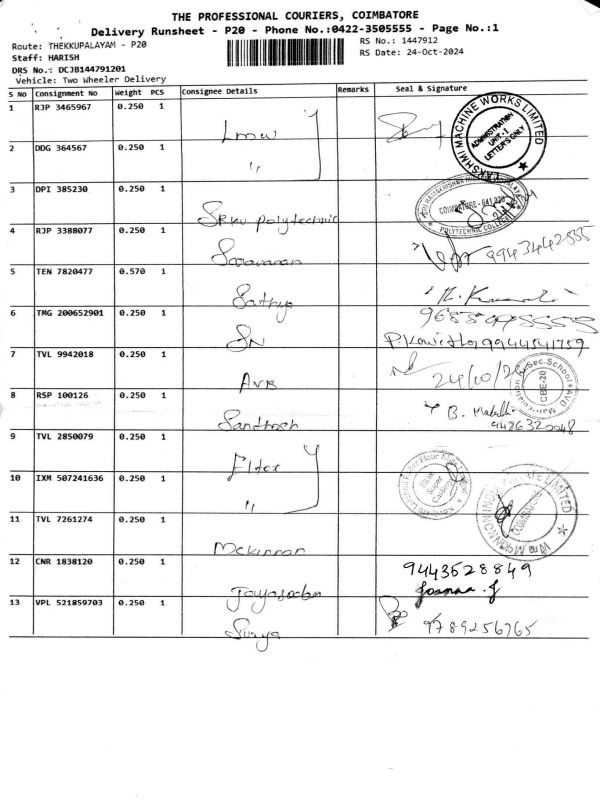 THE PROFESSIONAL COURIERS, COIMBATORE
Delivery Runsheet - P20 - Phone No.:0422-3505555 - Page No.:1
Route: THEKKUPALAYAM - P20
RS No.: 1447912
Staff: HARISH
RS Date: 24-Oct-2024
DRS No.: DCJB144791201
Vehicle: Two Wheeler Delivery
S No Consignment No Weight PCS Consignee Details Remarks Seal & Signature
1 RJP 3465967 0.250 1
LAKSHMI MACHINE WORKS LIMITED
ADMINISTRATION
UNIT-1
LETTER'S ONLY
2 DDG 364567 0.250 1
"
3 DPI 385230 0.250 1
SRKV polytechnic
COIMBATORE - 641 020
POLYTECHNIC COLLEGE
4 RJP 3388077 0.250 1
Saravanan
9943442555
5 TEN 7820477 0.570 1
Sathya
6 TMG 200652901 0.250 1
SN
P.Kavitha 9944541759
7 TVL 9942018 0.250 1
AVB
24/10/24
8 RSP 100126 0.250 1
Santhosh
B.
9426320048
9 TVL 2850079 0.250 1
Elter
10 IXM 507241636 0.250 1
"
11 TVL 7261274 0.250 1
Mckinnon
COIMBATORE
12 CNR 1838120 0.250 1
9443528849
Joanna.J
13 VPL 521859703 0.250 1
Surya
9789256765